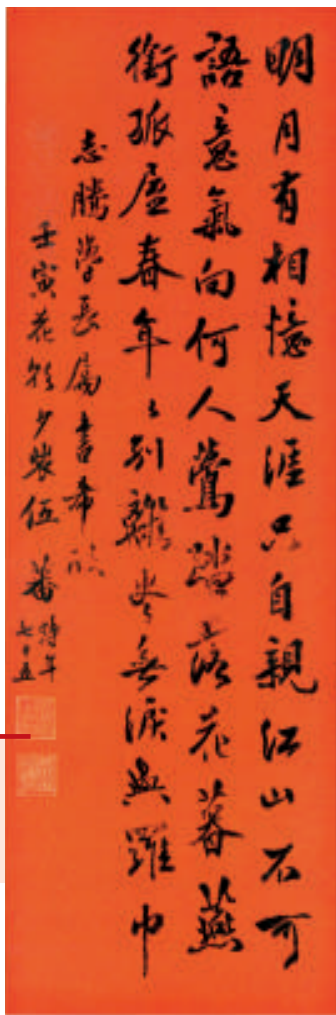 明月有相憶天涯只自親江山不可
語意氣向何人鶯踏落花暮燕
銜孤壘春年々別離常無淚與羅巾
志騰學長屬書希
壬寅花朝少裴伍蕃
時年
七十五